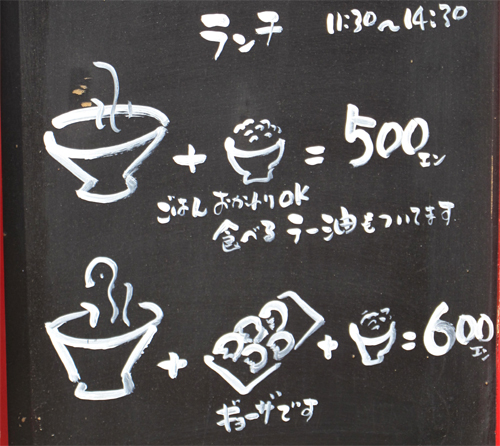 ランチ 11:30〜14:30
+ = 500エン
ごはんおかわりOK
食べるラー油もついてます
+ + = 600エン
ギョーザです